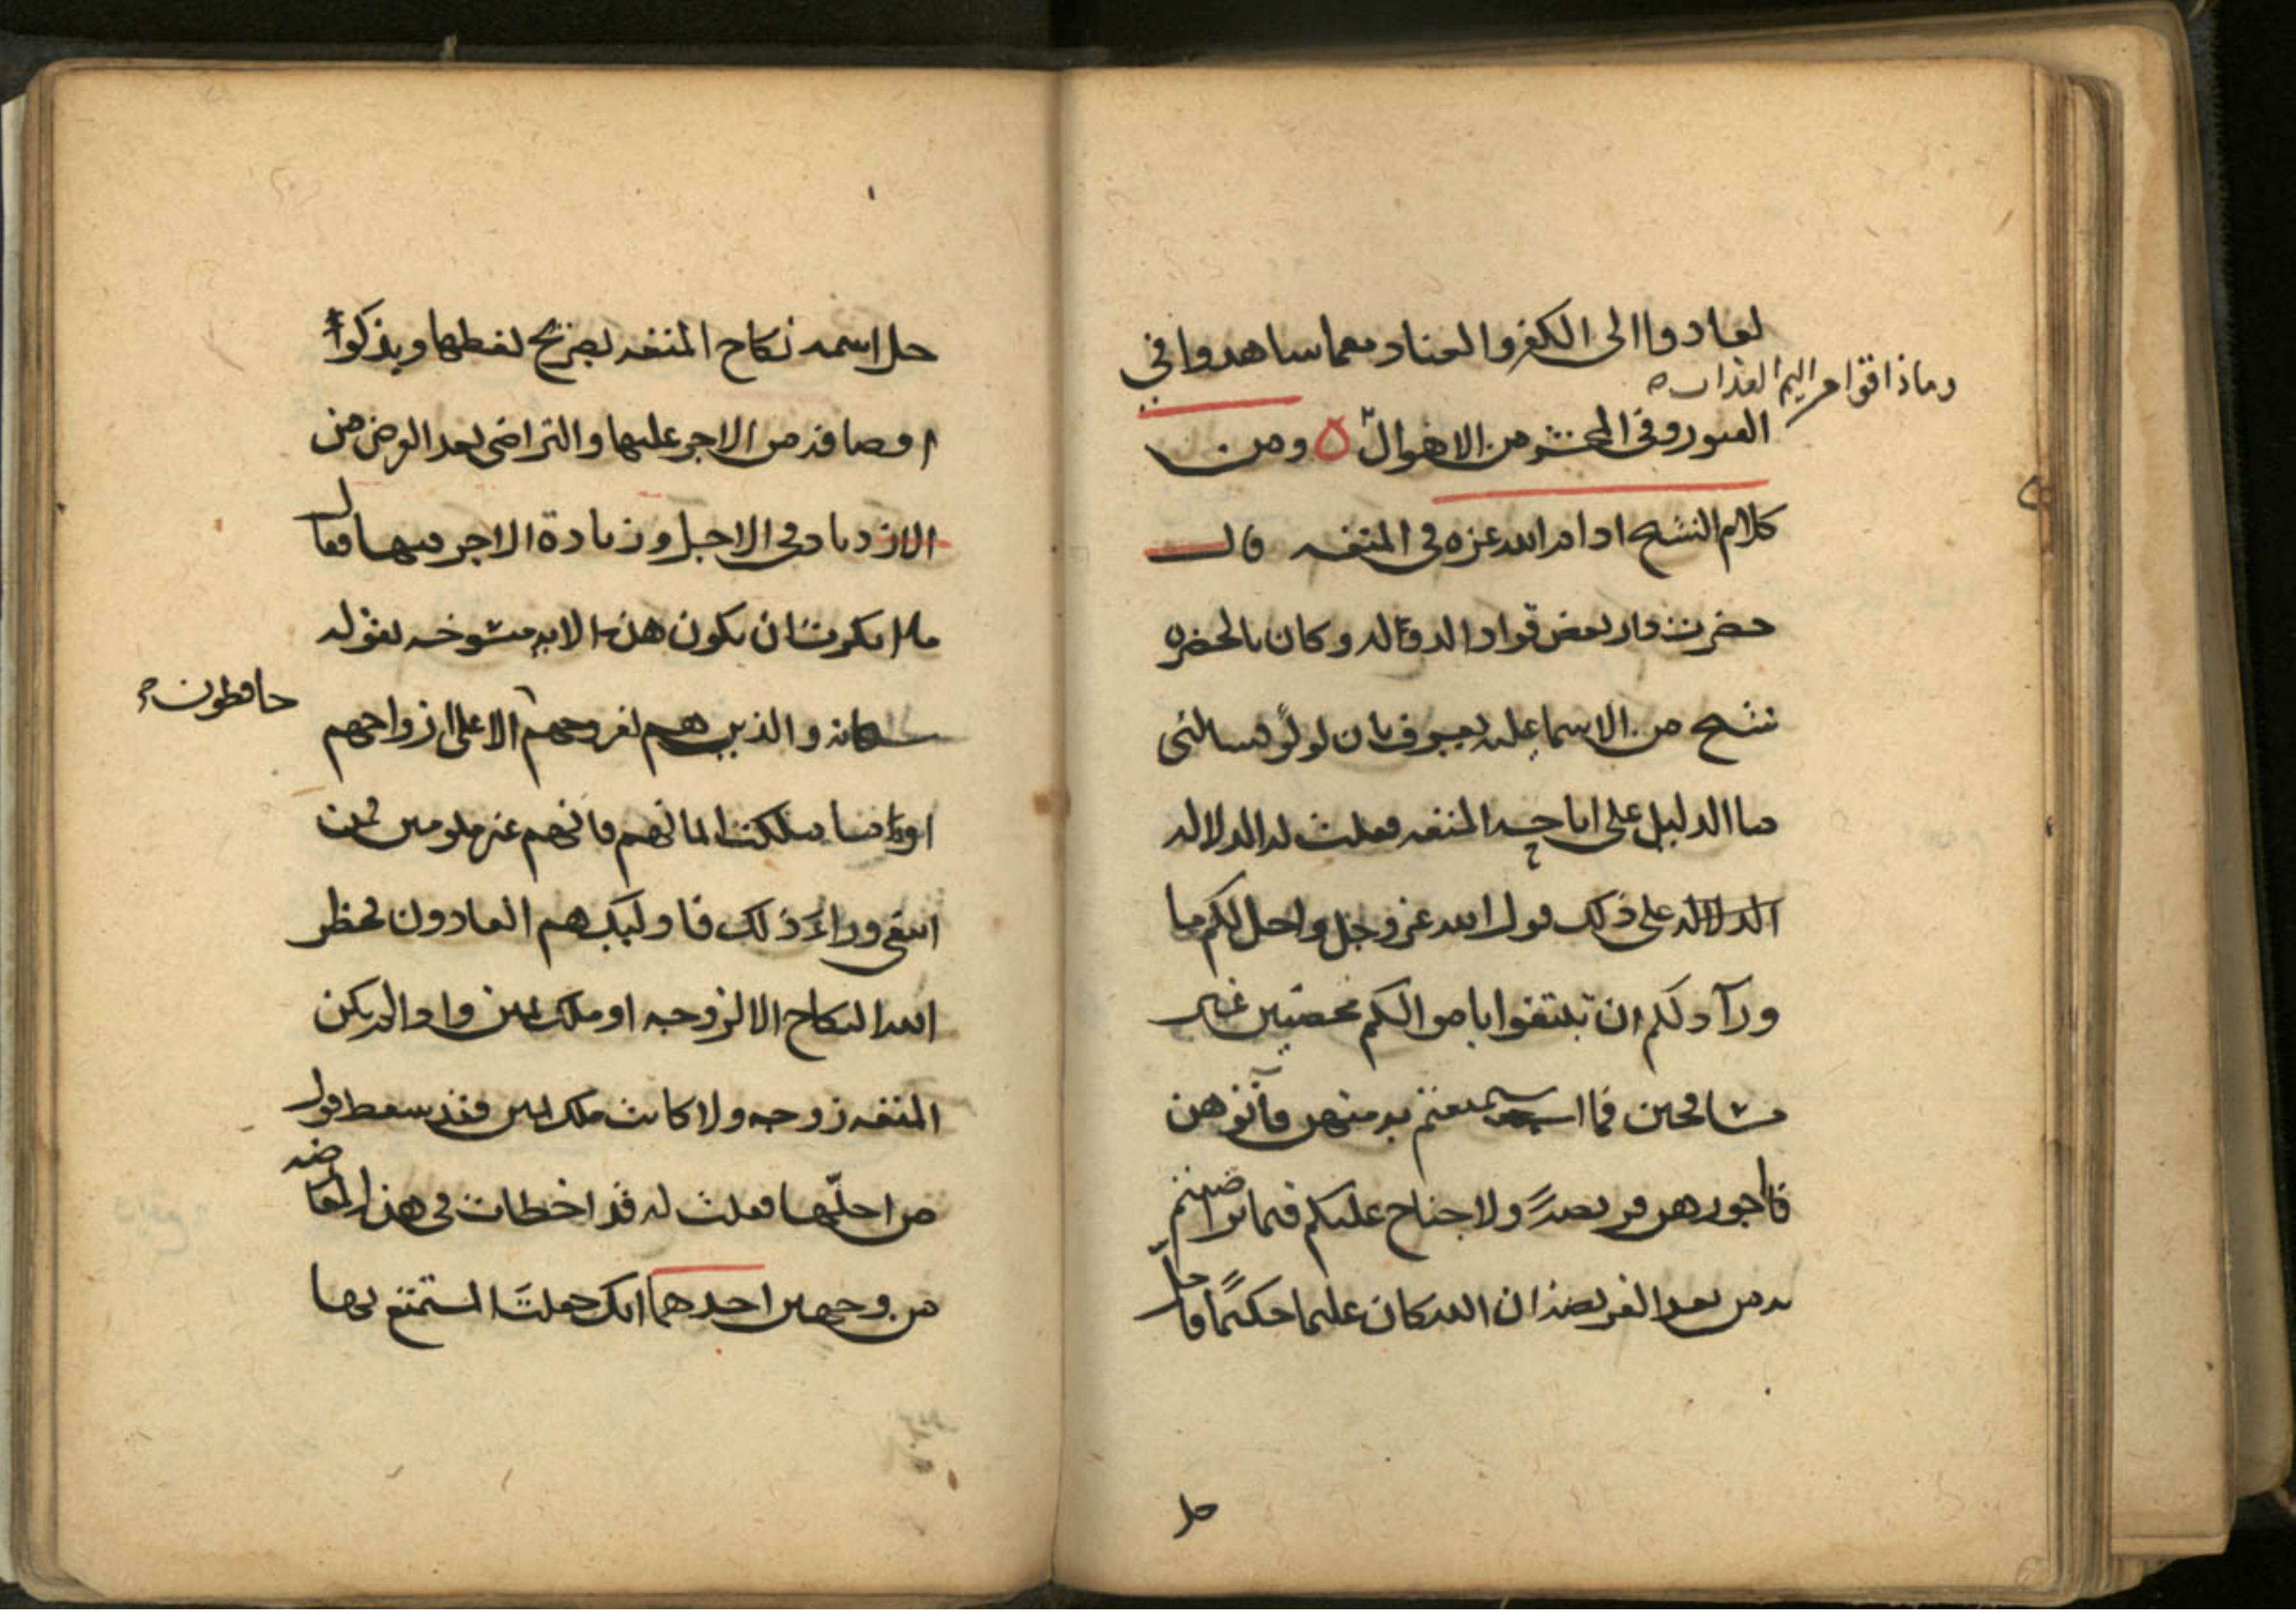 لعادوا الى الكفر والعناد معما ساهدوا في
وماذاقوا من اليم العذاب
القبور وفي المحشر من الاهوال ٥ ومن
كلام الشيخ ادام الله عزه في المتعه قال
حضرت دار بعض قواد الدوله وكان بالحضره
شيخ من الاسماعليه يعرف بابن لولو فسالنى
ما الدليل على اباحه المتعه فقلت له الدلاله
الدلاله على ذلك قول الله عز وجل واحل لكم ما
ورآ ذلكم ان تبتغوا باموالكم محصنين غير
مسافحين فما استمتعتم به منهن فآتوهن
اجورهن فريضة ولا جناح عليكم فيما تراضيتم
به من بعد الفريضة ان الله كان عليما حكيما فاحل
حل
جل اسمه نكاح المتعه بصريح لفظها وبذكر
اوصافه من الاجر عليها والتراضى بعد الفرض من
الازدياد في الاجل وزيادة الاجر فيها فقال
ما انكرت ان يكون هذه الايه منسوخه بقوله
سبحانه والذين هم لفروجهم الا على ازواجهم
حافظون
او ما ملكت ايمانهم فانهم غير ملومين فمن
ابتغى وراء ذلك فاوليك هم العادون فحظر
الله النكاح الا لزوجه او ملك يمين واذا لم يكن
المتعه زوجه ولا كانت ملك يمين فقد سقط قول
من احلها فقلت له قد اخطات في هذه المعارضه
من وجهين احدهما انك جعلت المستمتع بها